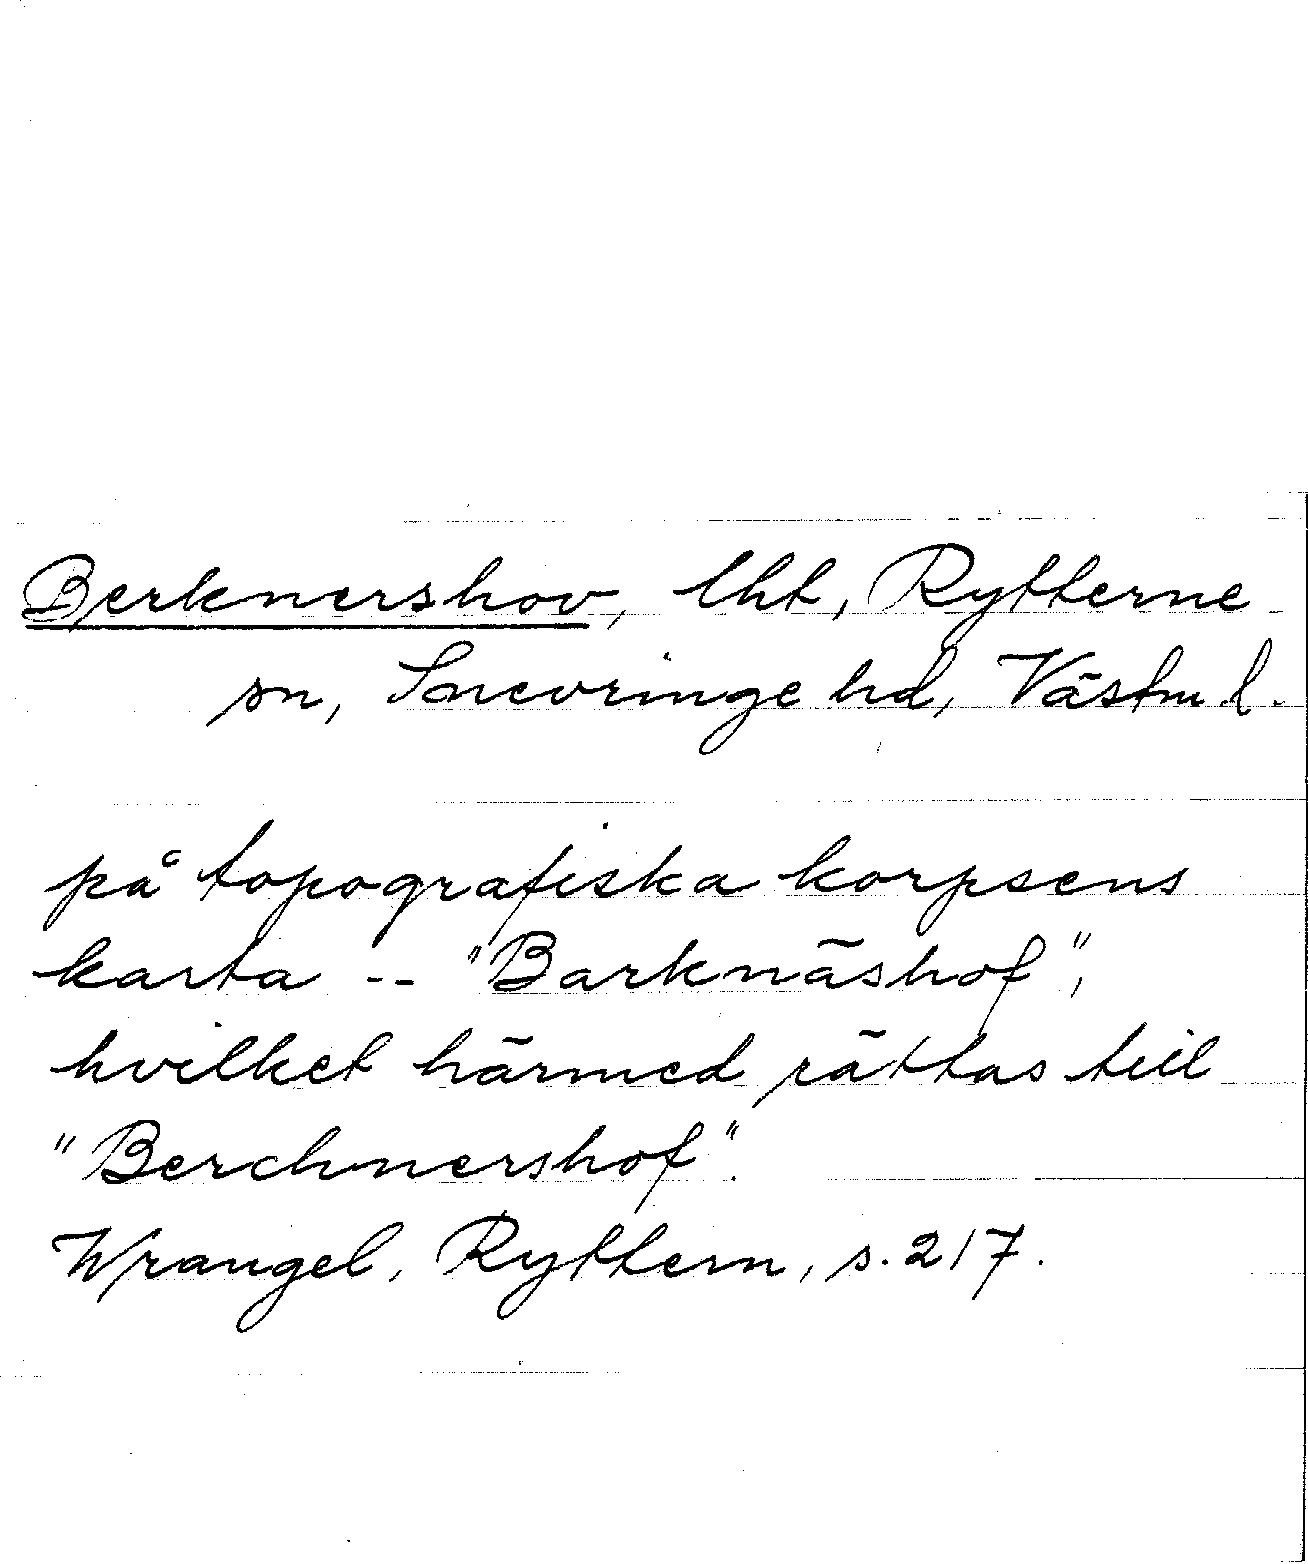 Berknershov, lht, Rytterne
sn, Snevringe hd, Västm l.
på topografiska korpsens
karta -- "Barknäshof",
hvilket härmed rättas till
"Berchnershof".
Wrangel, Ryttern, s. 217.